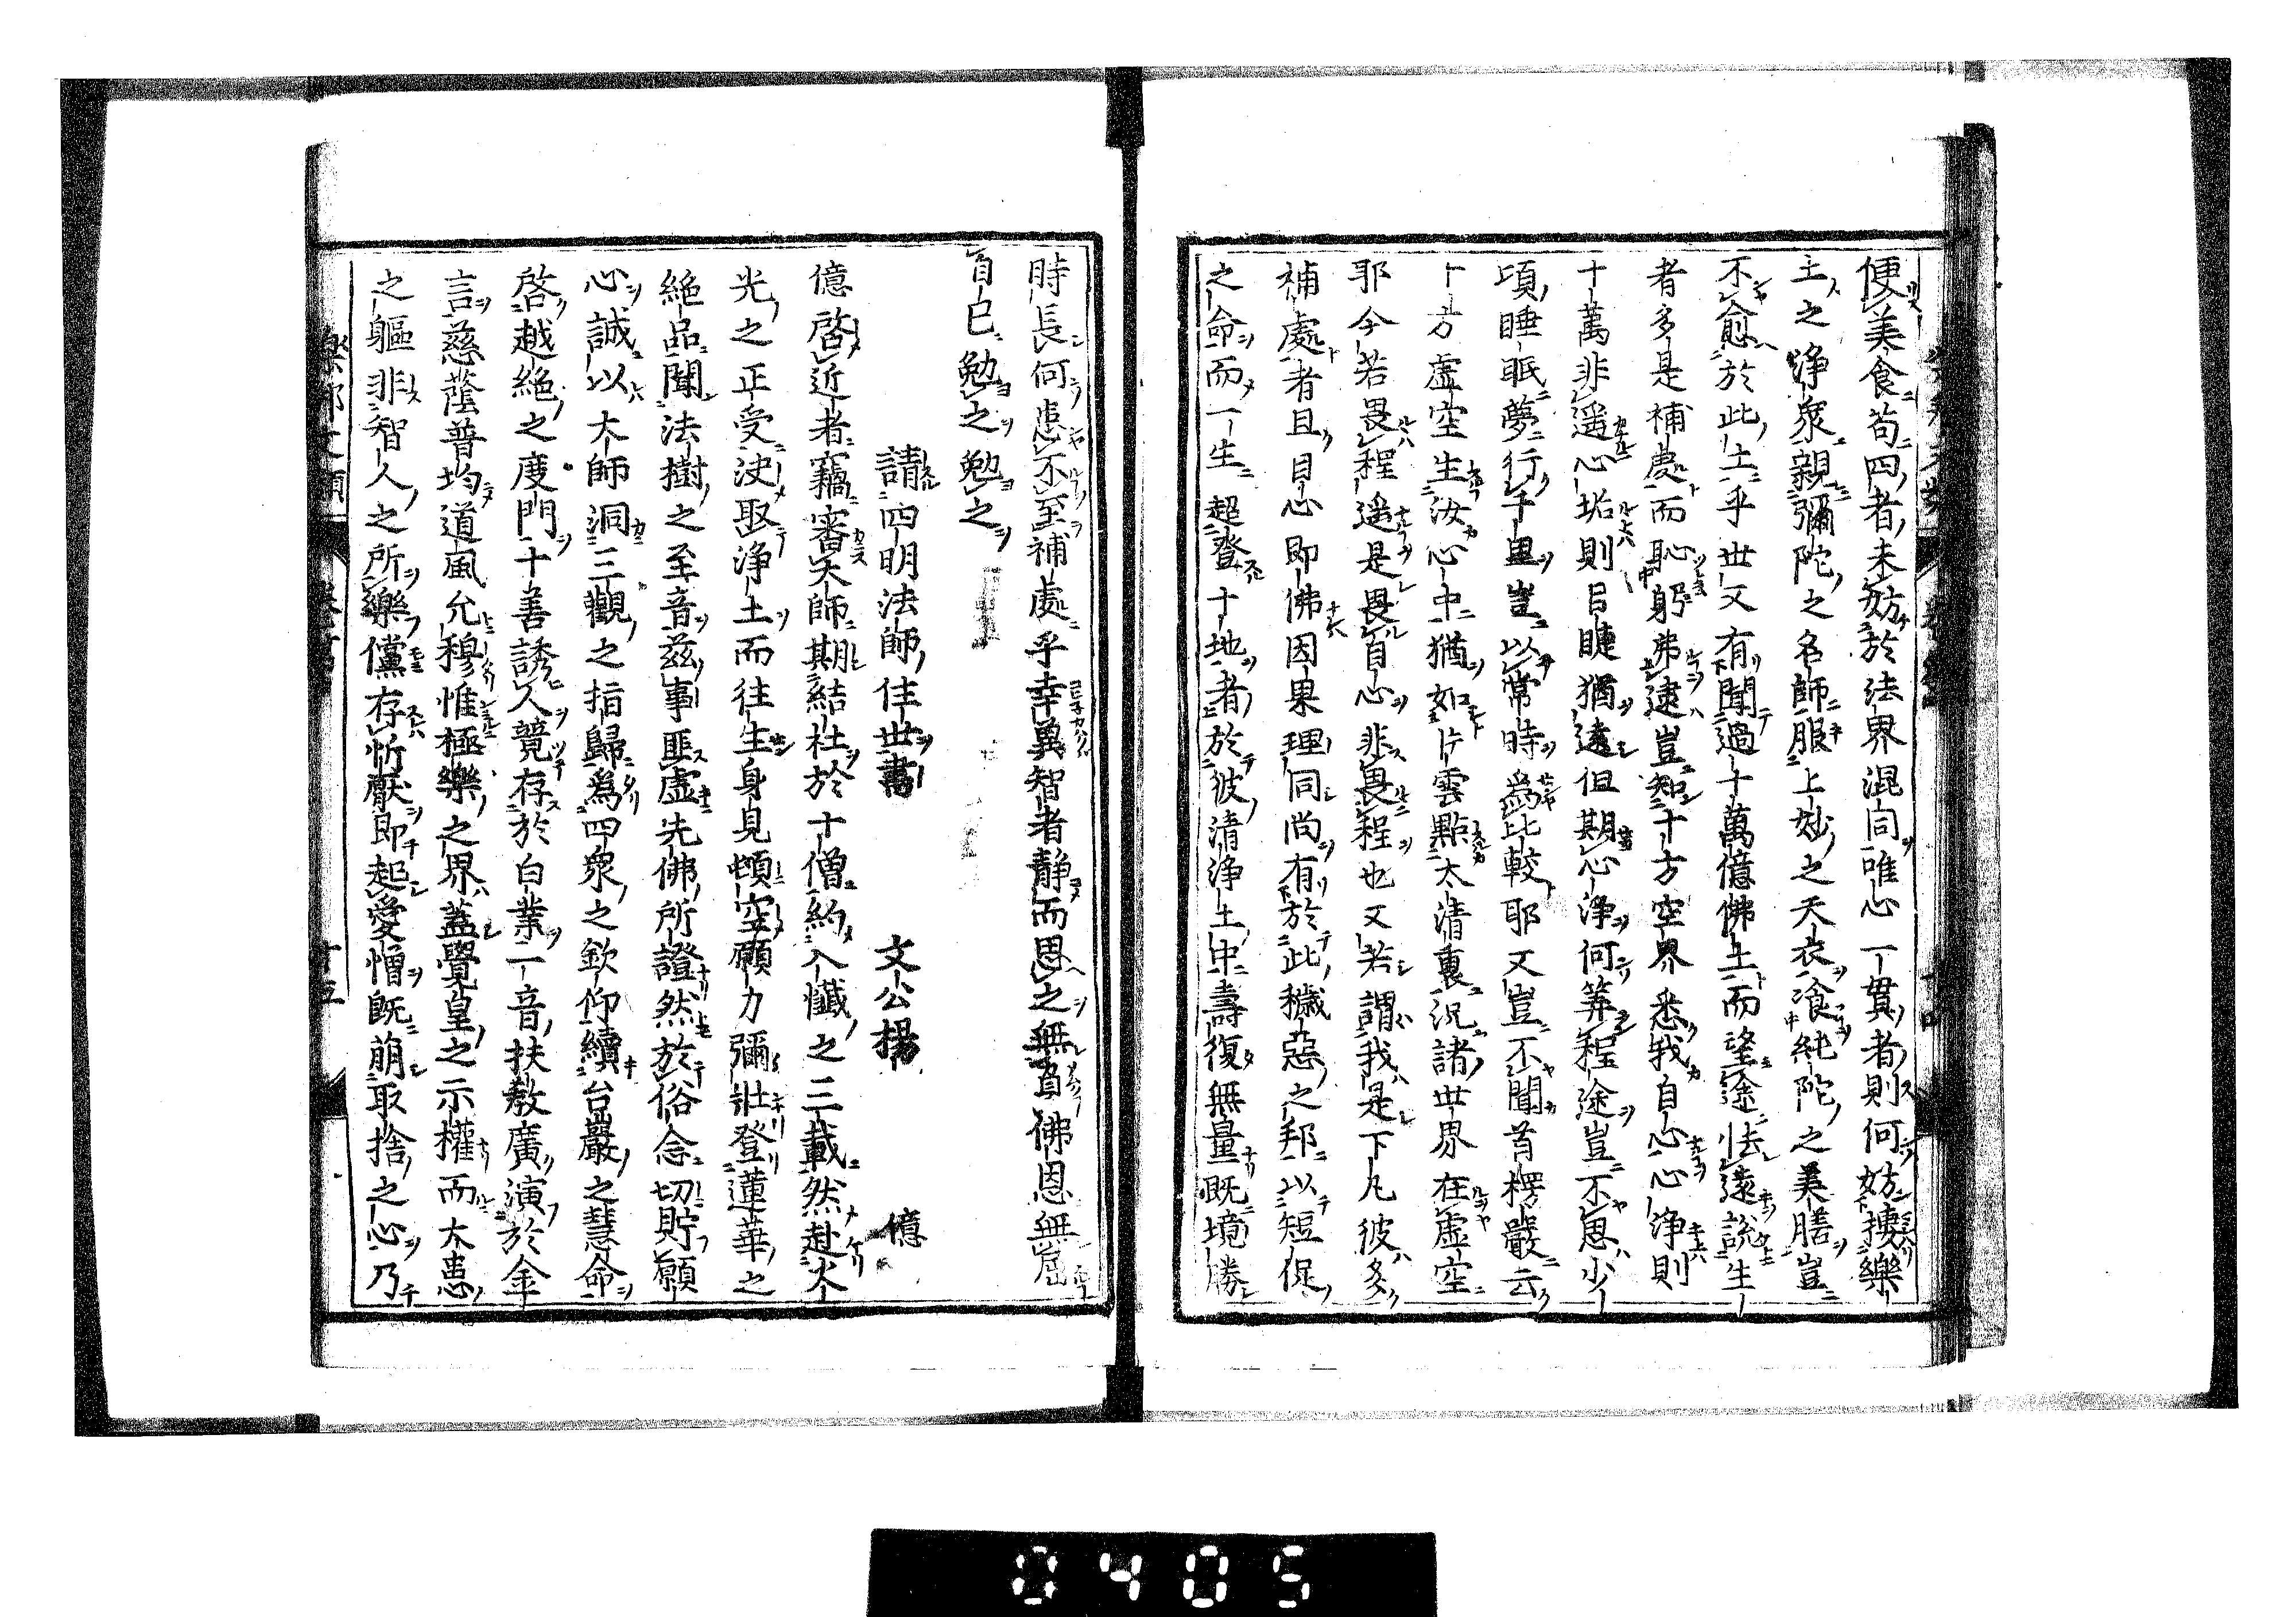 便美食苟四者未妨於法界混同唯心一貫者則何妨摟樂
土之淨衆親彌陀之名師服上妙之天衣飡純陀之美膳豈
不愈於此土乎世又有聞過十萬億佛土而望途怯遠說生
者多是補處而恥躬弗逮豈知十方空界悉我自心心淨則
十萬非遥心垢則目睫猶遠但期心淨何筭程途豈不思少
頃睡眠夢行千里豈以常時為比較耶又豈不聞首楞嚴云
十方虛空生汝心中猶如片雲點太清裏況諸世界在虛空
耶今若畏程遥是畏自心非畏程也又若謂我是下凡彼多
補處者且自心即佛因果理同尚有於此穢惡之邦以短促
之命而一生超登十地者於彼清淨土中壽復無量既境勝
時長何患不至補處乎幸冀智者靜而思之無負佛恩無屈
自己勉之勉之
請四明法師住世書 文公楊 億
億啓近者竊審大師期結社於十僧約入懺之三載然赴大
光之正受決取淨土而往生身見頓空願力彌壯登蓮華之
絕品聞法樹之至音兹事匪虛先佛所證然於俗念切貯願
心誠以大師洞三觀之指歸為四衆之欽仰續台嚴之慧命
啓越絕之度門十善誘人競存於白業一音扶教廣演於金
言慈蔭普均道風允穆惟極樂之界蓋覺皇之示權而大患
之軀非智人之所樂儻存忻厭即起愛憎既萠取捨之心乃
樂邦文類 十五
0405